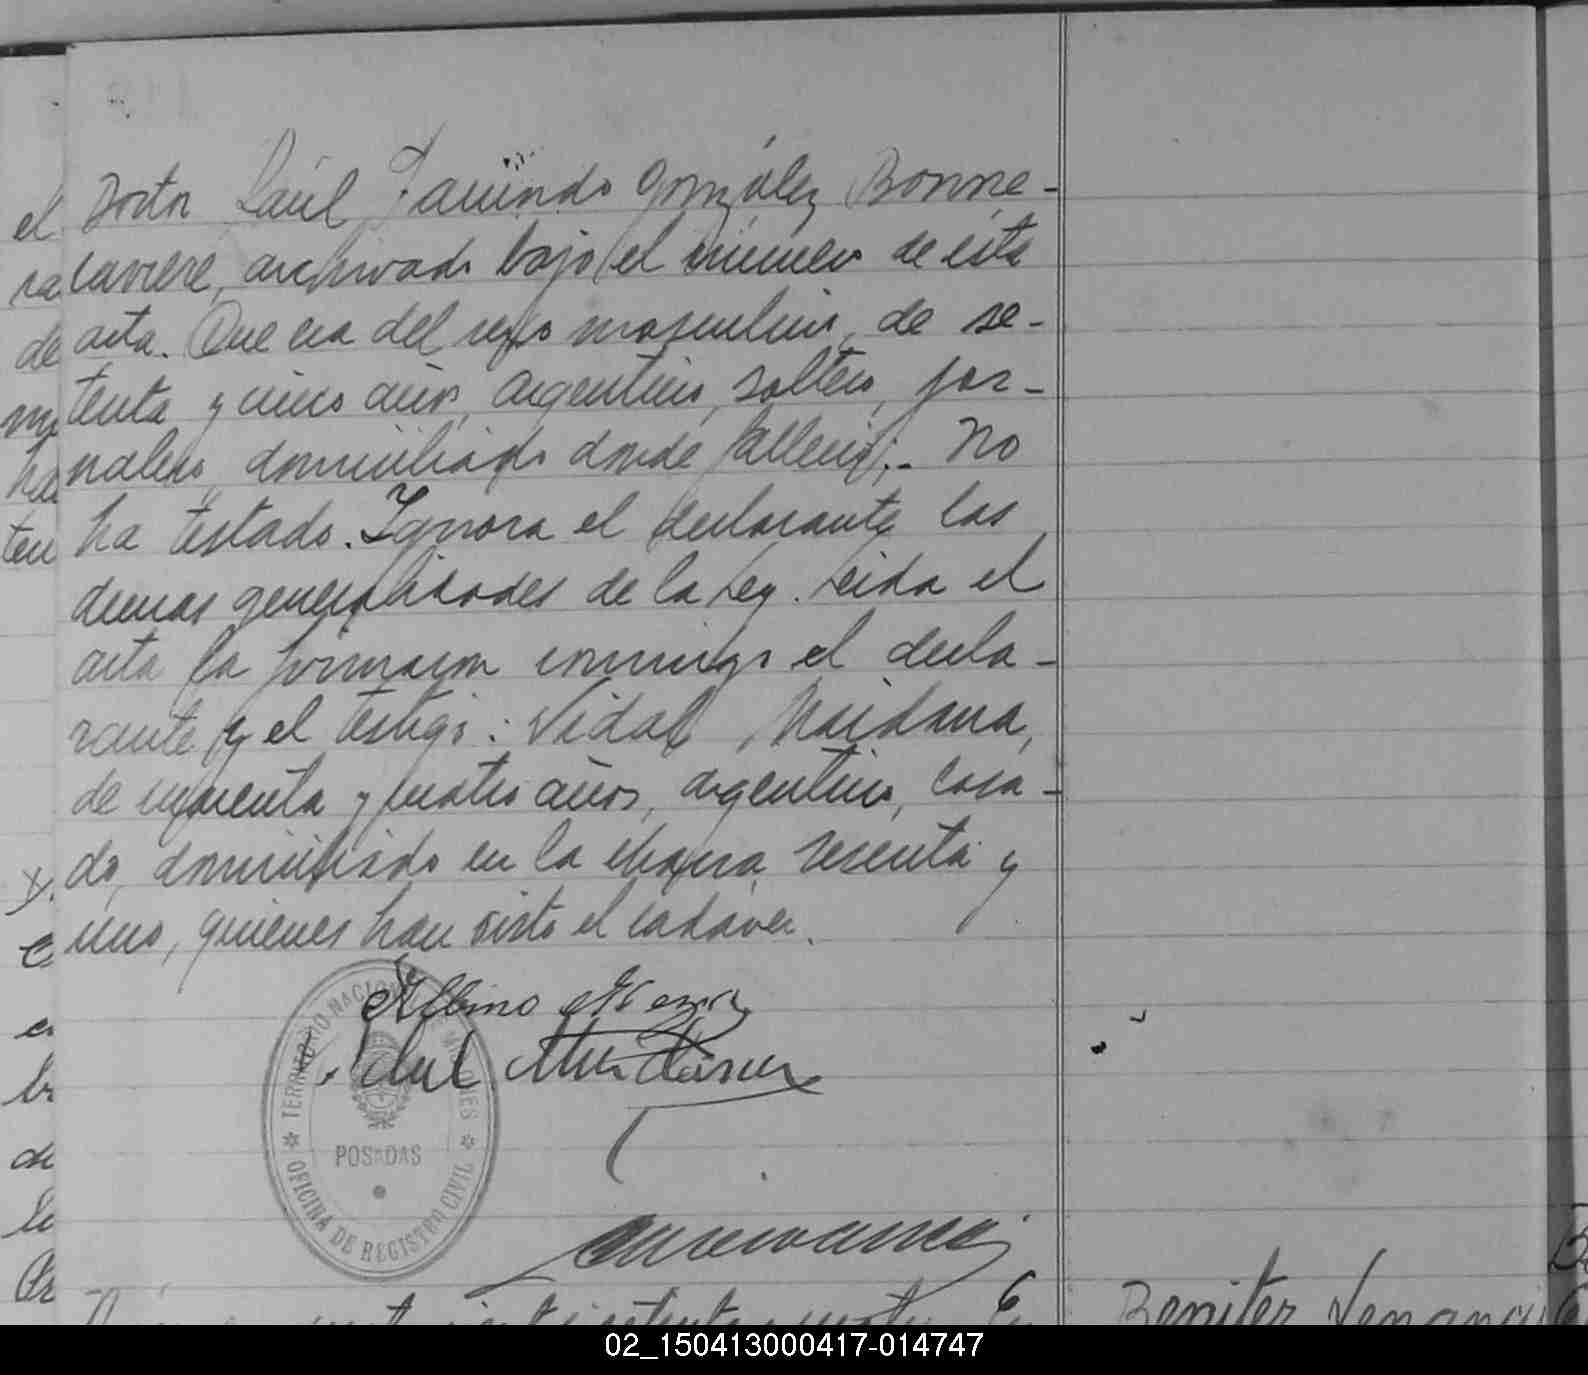 Doctor Raúl Facundo González Bonne-
caviere, archivado bajo el número de esta
acta. Que era del sexo masculino, de se-
tenta y cinco años, argentino, soltero, jor-
nalero, domiciliado donde falleció.- No
ha testado. Ignora el declarante las
demas generalidades de la Ley. Leida el
acta la firmaron conmigo el decla-
rante y el testigo: Vidal Maidana,
de cuarenta y cuatro años, argentino, casa-
do, domiciliado en la chacra sesenta y
uno, quienes han visto el cadáver.
Albino
TERRITORIO NACIONAL DE MISIONES
POSADAS
OFICINA DE REGISTRO CIVIL
Benitez Venanci
el
ra
de
ha
ten
02_150413000417-014747